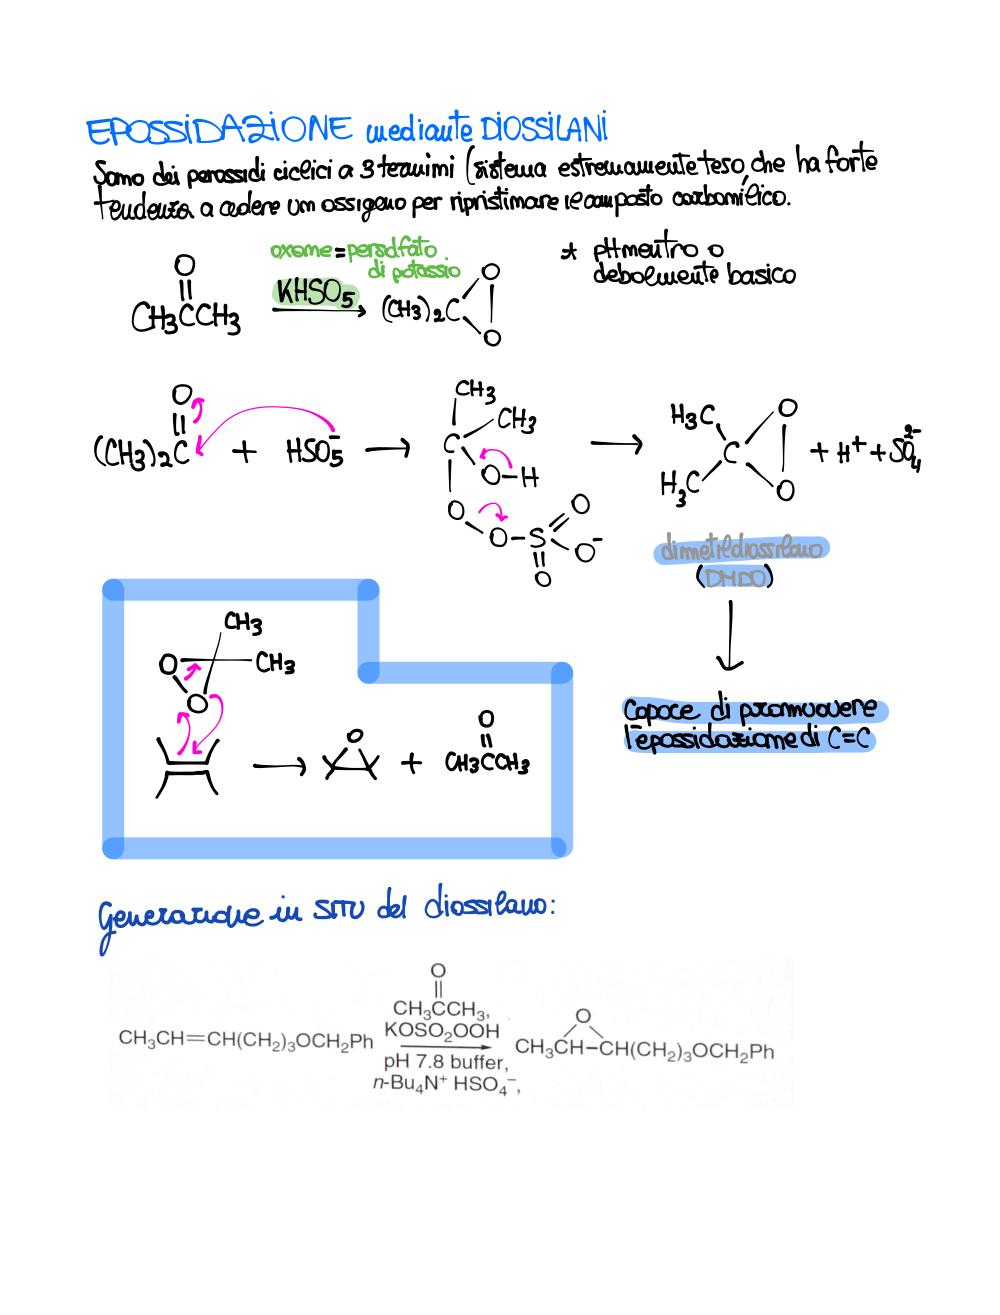 EPOSSIDAZIONE mediante DIOSSILANI
Sono dei perossidi ciclici a 3 termini (sistema estremamente teso che ha forte
tendenza a cedere un ossigeno per ripristinare il composto carbonilico.
oxone = persolfato
di potassio
* pH neutro o
debolmente basico
O
CH3CCH3
KHSO5
(CH3)2C
O
O
O
(CH3)2C + HSO5⁻
CH3
CH3
C
O-H
O
O-S
O
O⁻
O
H3C
H3C
C
O
O
+ H⁺ + SO4²⁻
dimetildiossilano
(DMDO)
Capace di promuovere
l'epossidazione di C=C
CH3
CH3
O
O
O
+
O
CH3CCH3
Generazione in SITU del diossilano:
O
CH3CCH3,
KOSO2OOH
CH3CH=CH(CH2)3OCH2Ph
pH 7.8 buffer,
n-Bu4N⁺ HSO4⁻,
O
CH3CH–CH(CH2)3OCH2Ph